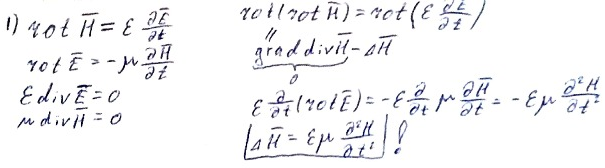 1) rot H̅ = ε ∂E̅/∂t
rot E̅ = -μ ∂H̅/∂t
ε div E̅ = 0
μ div H̅ = 0
rot(rot H̅) = rot(ε ∂E/∂t)
||
grad div H̅ - ΔH̅
0
ε ∂/∂t (rot E̅) = -ε ∂/∂t μ ∂H̅/∂t = -εμ ∂²H/∂t²
ΔH̅ = εμ ∂²H/∂t² !